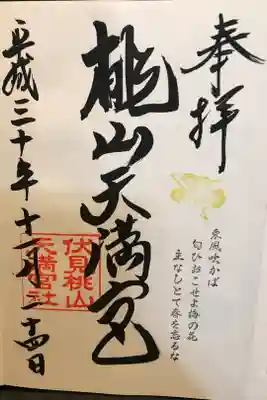 奉拝
東風吹かば
匂ひおこせよ梅の花
主なしとて春を忘るな
桃山天満宮
伏見桃山
天満宮社
平成三十年十一月二十四日